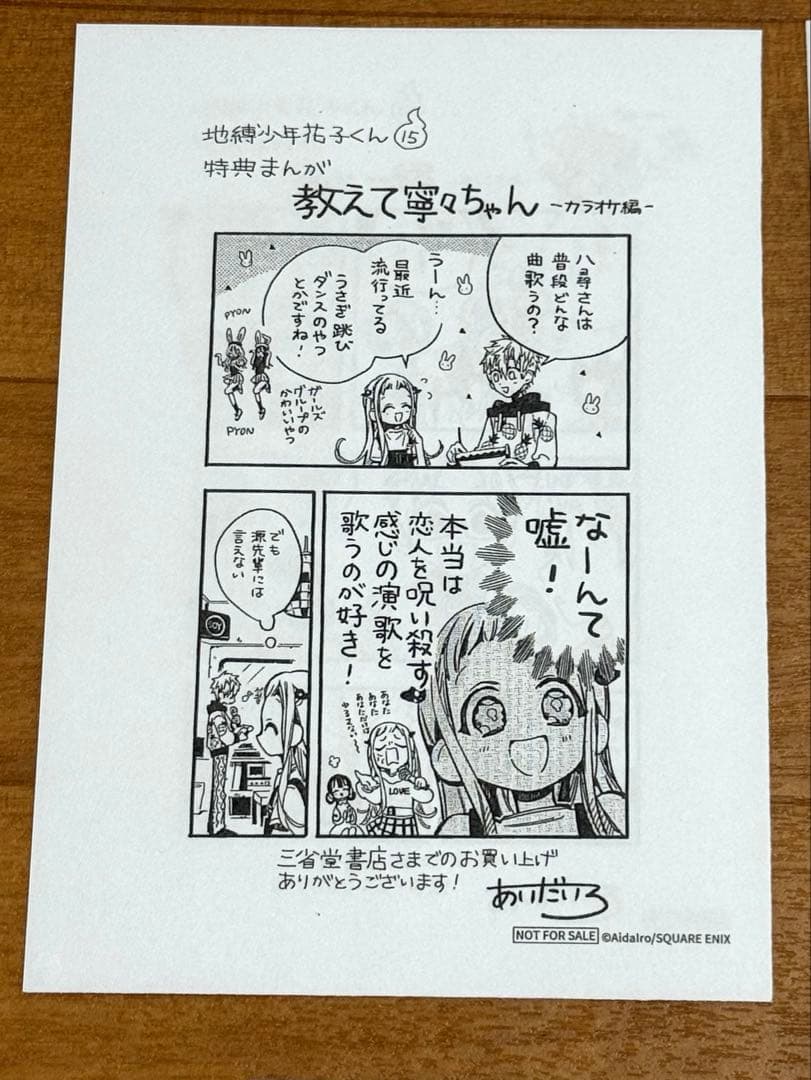 地縛少年花子くん 15
特典まんが
教えて寧々ちゃん -カラオケ編-
八尋さんは
普段どんな
曲歌うの?
うーん…
最近
流行ってる
うさぎ跳び
ダンスのやつ
とかですね!
PYON
PYON
ガールズ
グループの
かわいいやつ
なーんて
嘘!
本当は
恋人を呪い殺す
感じの演歌を
歌うのが好き!
あなた
あなただけは
ゆるさない〜
LOVE
でも
源先輩には
言えない
三省堂書店さまでのお買い上げ
ありがとうございます!
あいだいろ
NOT FOR SALE ©AidaIro/SQUARE ENIX